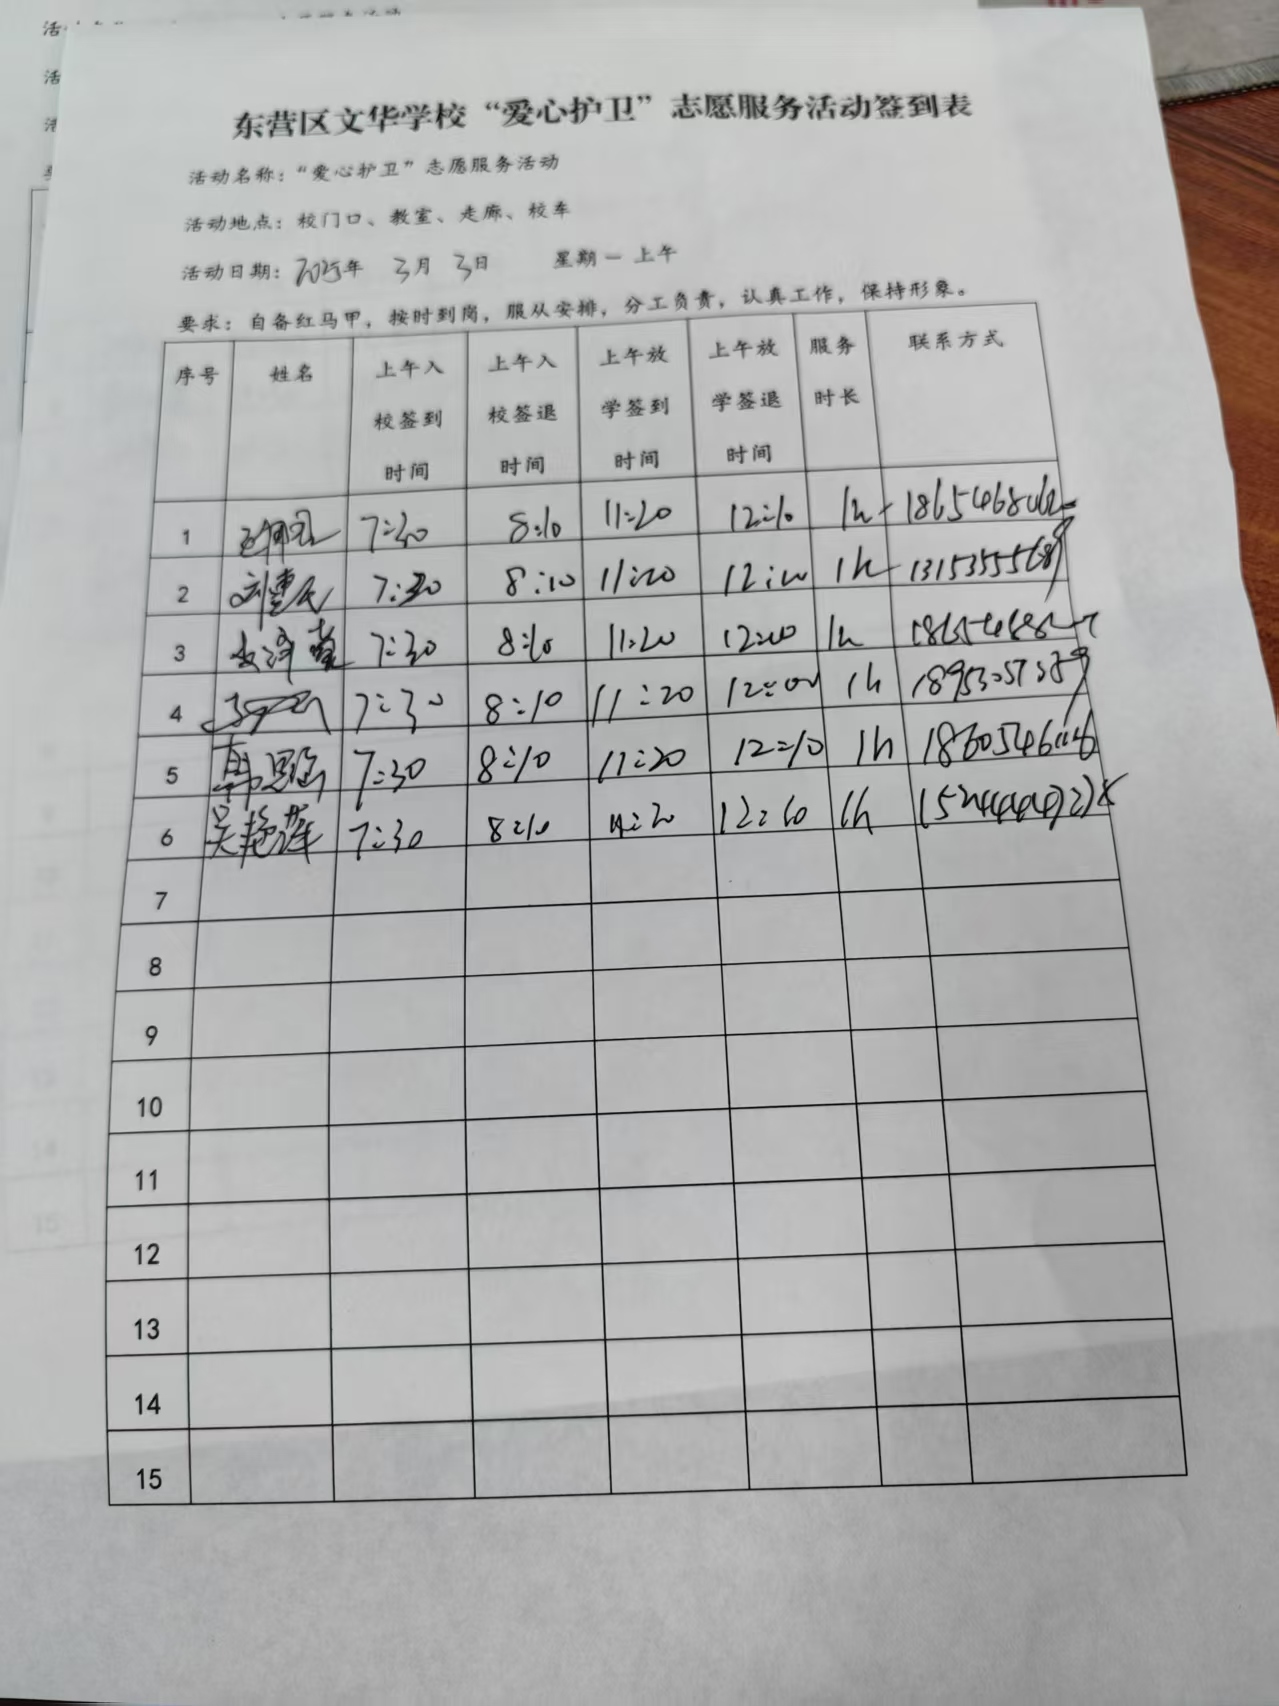 东营区文华学校“爱心护卫”志愿服务活动签到表
活动名称：“爱心护卫”志愿服务活动
活动地点：校门口、教室、走廊、校车
活动日期：2025年 3月 3日 星期一 上午
要求：自备红马甲，按时到岗，服从安排，分工负责，认真工作，保持形象。
序号 姓名 上午入校签到时间 上午入校签退时间 上午放学签到时间 上午放学签退时间 服务时长 联系方式
1 7:30 8:10 11:20 12:10 1h
2 7:30 8:10 11:20 1h
3 7:30 8:10 11:20 12:00 1h
4 7:30 8:10 11:20 12:00 1h
5 韩思涵 7:30 8:10 11:20 12:10 1h
6 吴艳萍 7:30 8:10 12:10 1h
7
8
9
10
11
12
13
14
15